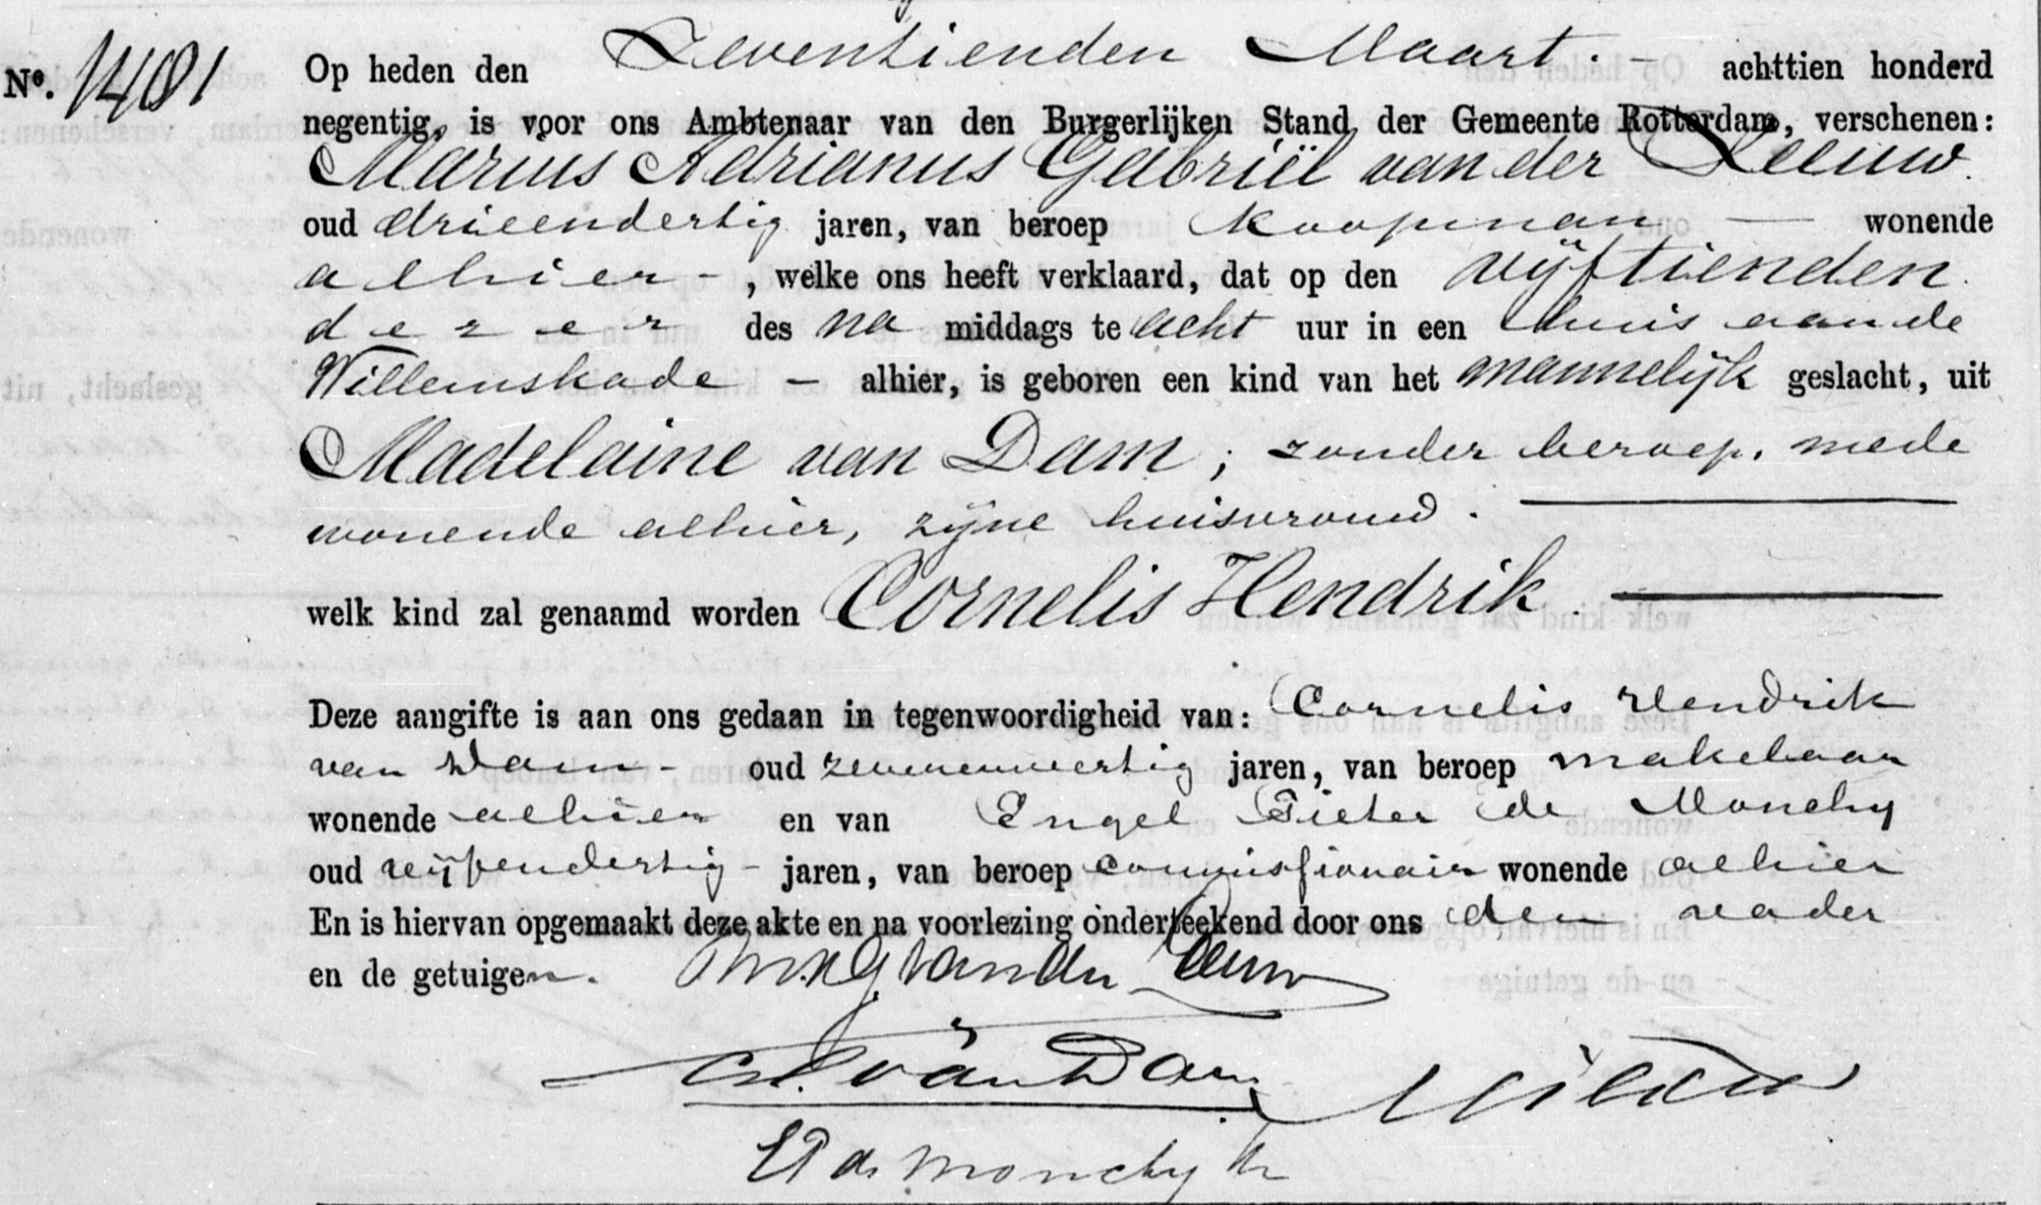 No. 1481 Op heden den Zeventienden Maart. - achttien honderd
negentig, is voor ons Ambtenaar van den Burgerlijken Stand der Gemeente Rotterdam, verschenen:
Marius Adrianus Gabriël van der Leeuw.
oud drieendertig jaren, van beroep koopman — wonende
alhier - , welke ons heeft verklaard, dat op den vijftienden
dezer des na middags te acht uur in een huis aan de
Willemskade - alhier, is geboren een kind van het mannelijk geslacht, uit
Madelaine van Dam, zonder beroep, mede
wonende alhier, zijne huisvrouw. —
welk kind zal genaamd worden Cornelis Hendrik. —
Deze aangifte is aan ons gedaan in tegenwoordigheid van: Cornelis Hendrik
van Dam - oud zevenenveertig jaren, van beroep makelaar
wonende alhier en van Engel Pieter de Monchy
oud vijfendertig - jaren, van beroep commissionair wonende alhier
En is hiervan opgemaakt deze akte en na voorlezing onderteekend door ons den vader
en de getuigen. MAG van der Leeuw
CH van Dam
EP de Monchy